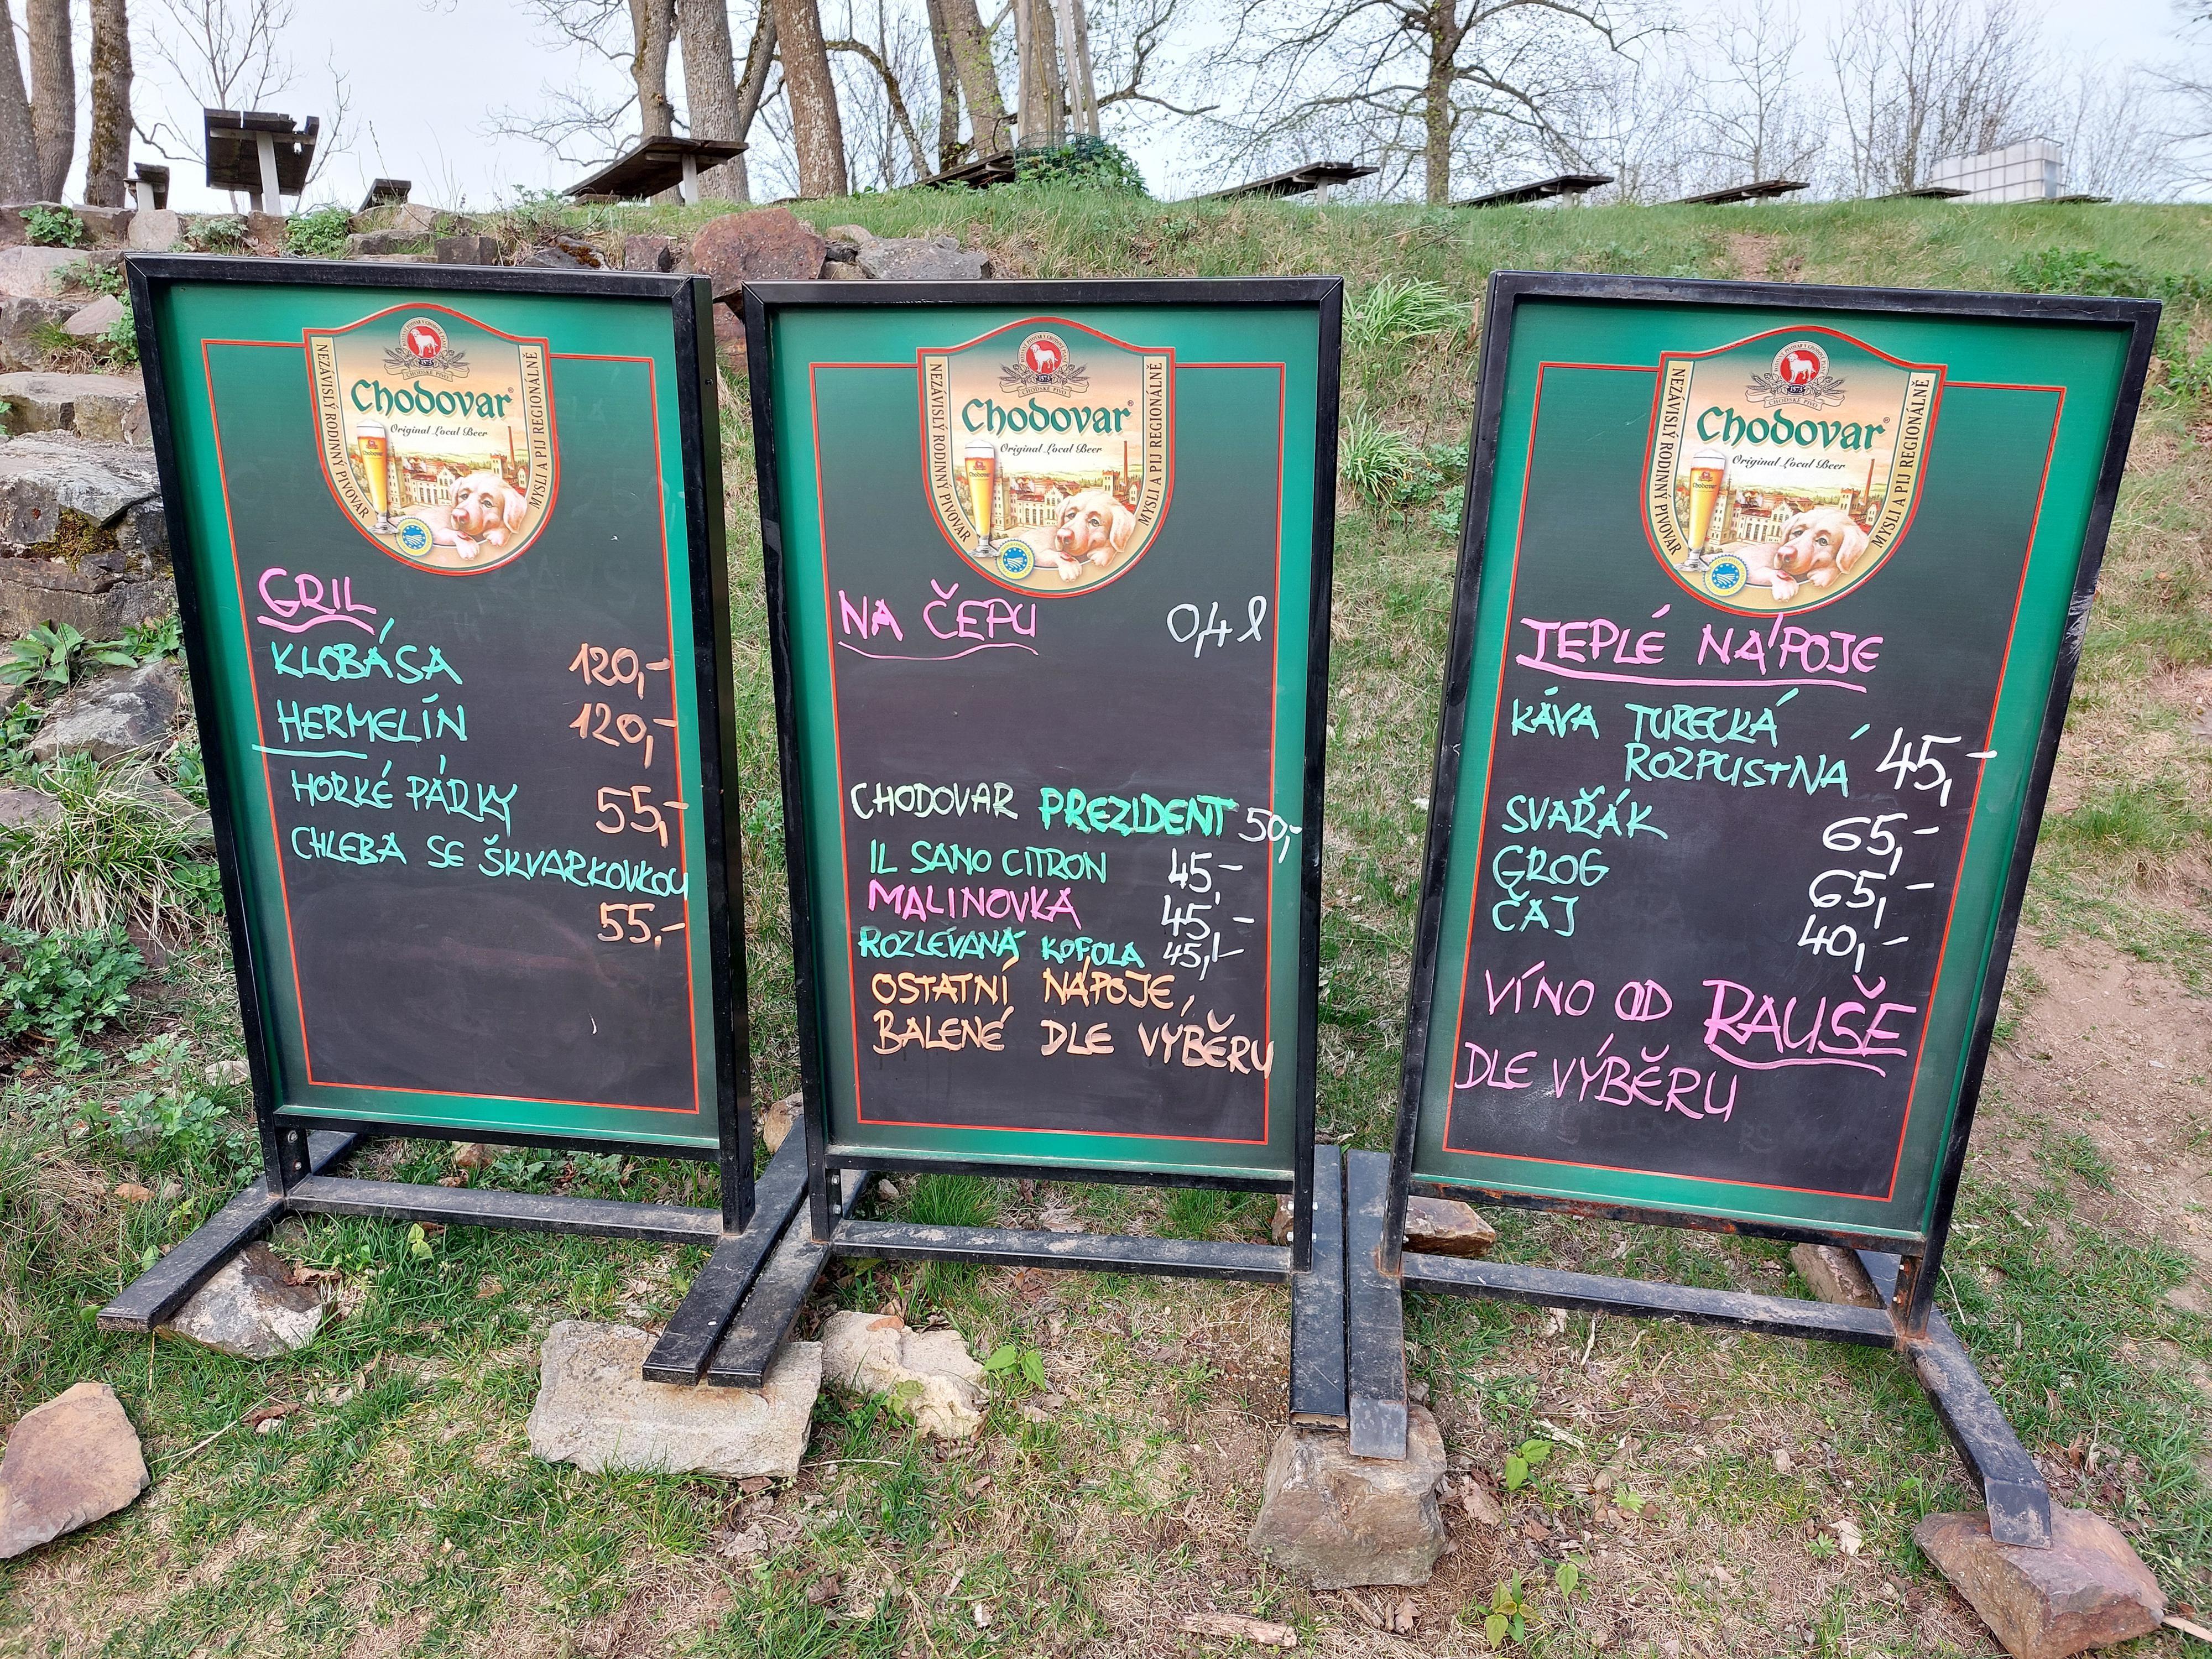 NEZÁVISLÝ RODINNÝ PIVOVAR
MYSLI A PIJ REGIONÁLNĚ
Chodovar®
Original Local Beer
GRIL
KLOBÁSA 120,-
HERMELÍN 120,-
HORKÉ PÁRKY 55,-
CHLEBA SE ŠKVARKOVKOU
55,-
NEZÁVISLÝ RODINNÝ PIVOVAR
MYSLI A PIJ REGIONÁLNĚ
CHODSKÉ PIVO
Chodovar®
Original Local Beer
NA ČEPU 0,4 l
CHODOVAR PREZIDENT 50,-
IL SANO CITRON 45,-
MALINOVKA 45,-
ROZLÉVANÁ KOFOLA 45,-
OSTATNÍ NÁPOJE,
BALENÉ DLE VÝBĚRU
NEZÁVISLÝ RODINNÝ PIVOVAR
MYSLI A PIJ REGIONÁLNĚ
CHODSKÉ PIVO
Chodovar®
Original Local Beer
TEPLÉ NÁPOJE
KÁVA TURECKÁ
ROZPUSTNÁ 45,-
SVAŘÁK 65,-
GROG 65,-
ČAJ 40,-
VÍNO OD RAUŠE
DLE VÝBĚRU